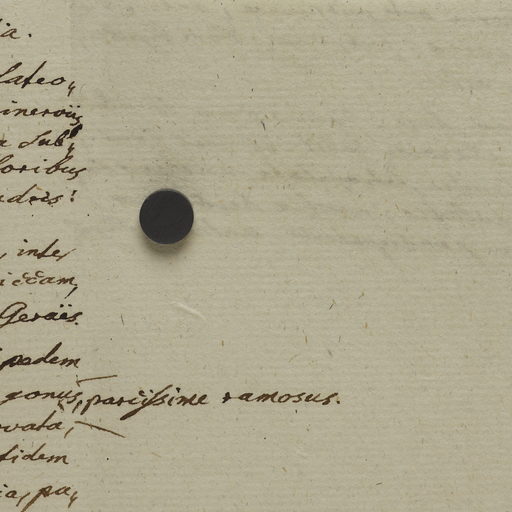 ia.
lateo„
inerviis
a sub„
loribus
adris:
, inter
siccam,
Geraës.
pedem
gonus, parcissime ramosus.
vata,
tidem
ia, pa„